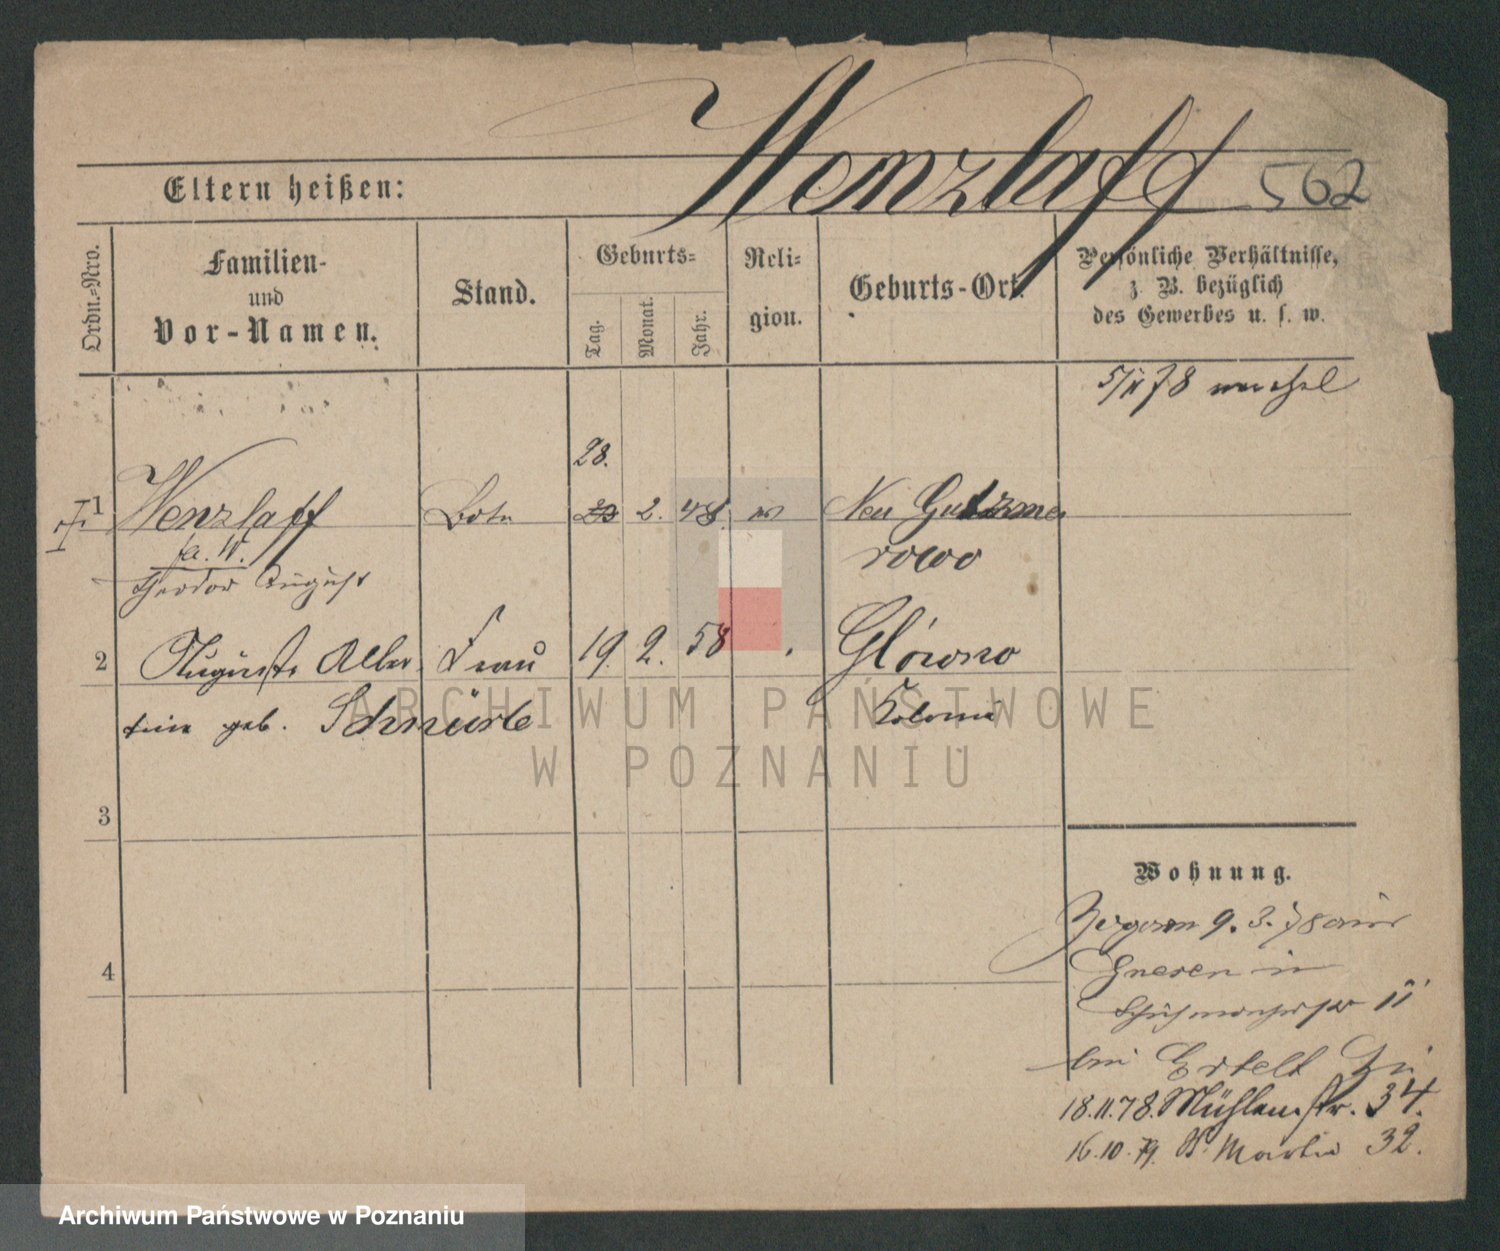 Wenzlaff
562
Eltern heißen:
Ordn.-Nro.
Familien-
und
Vor-Namen.
Stand.
Geburts-
Tag.
Monat.
Jahr.
Reli-
gion.
Geburts-Ort.
Persönliche Verhältnisse,
z. B. bezüglich
des Gewerbes u. s. w.
28.
1 Wenzlaff Bote 23 2. 48 Neu
a. W. rowo
Theodor August
2 Auguste Alber Frau 19. 2. 58 Glówno
tine geb. Schnürle Kolonie
ARCHIWUM PAŃSTWOWE
W POZNANIU
3
4
Wohnung.
9. 3. 78 aus
Gnesen in
11
bei Ertelt
18.11.78. Mühlenstr. 34.
16.10.79. St. Martin 32.
Archiwum Państwowe w Poznaniu